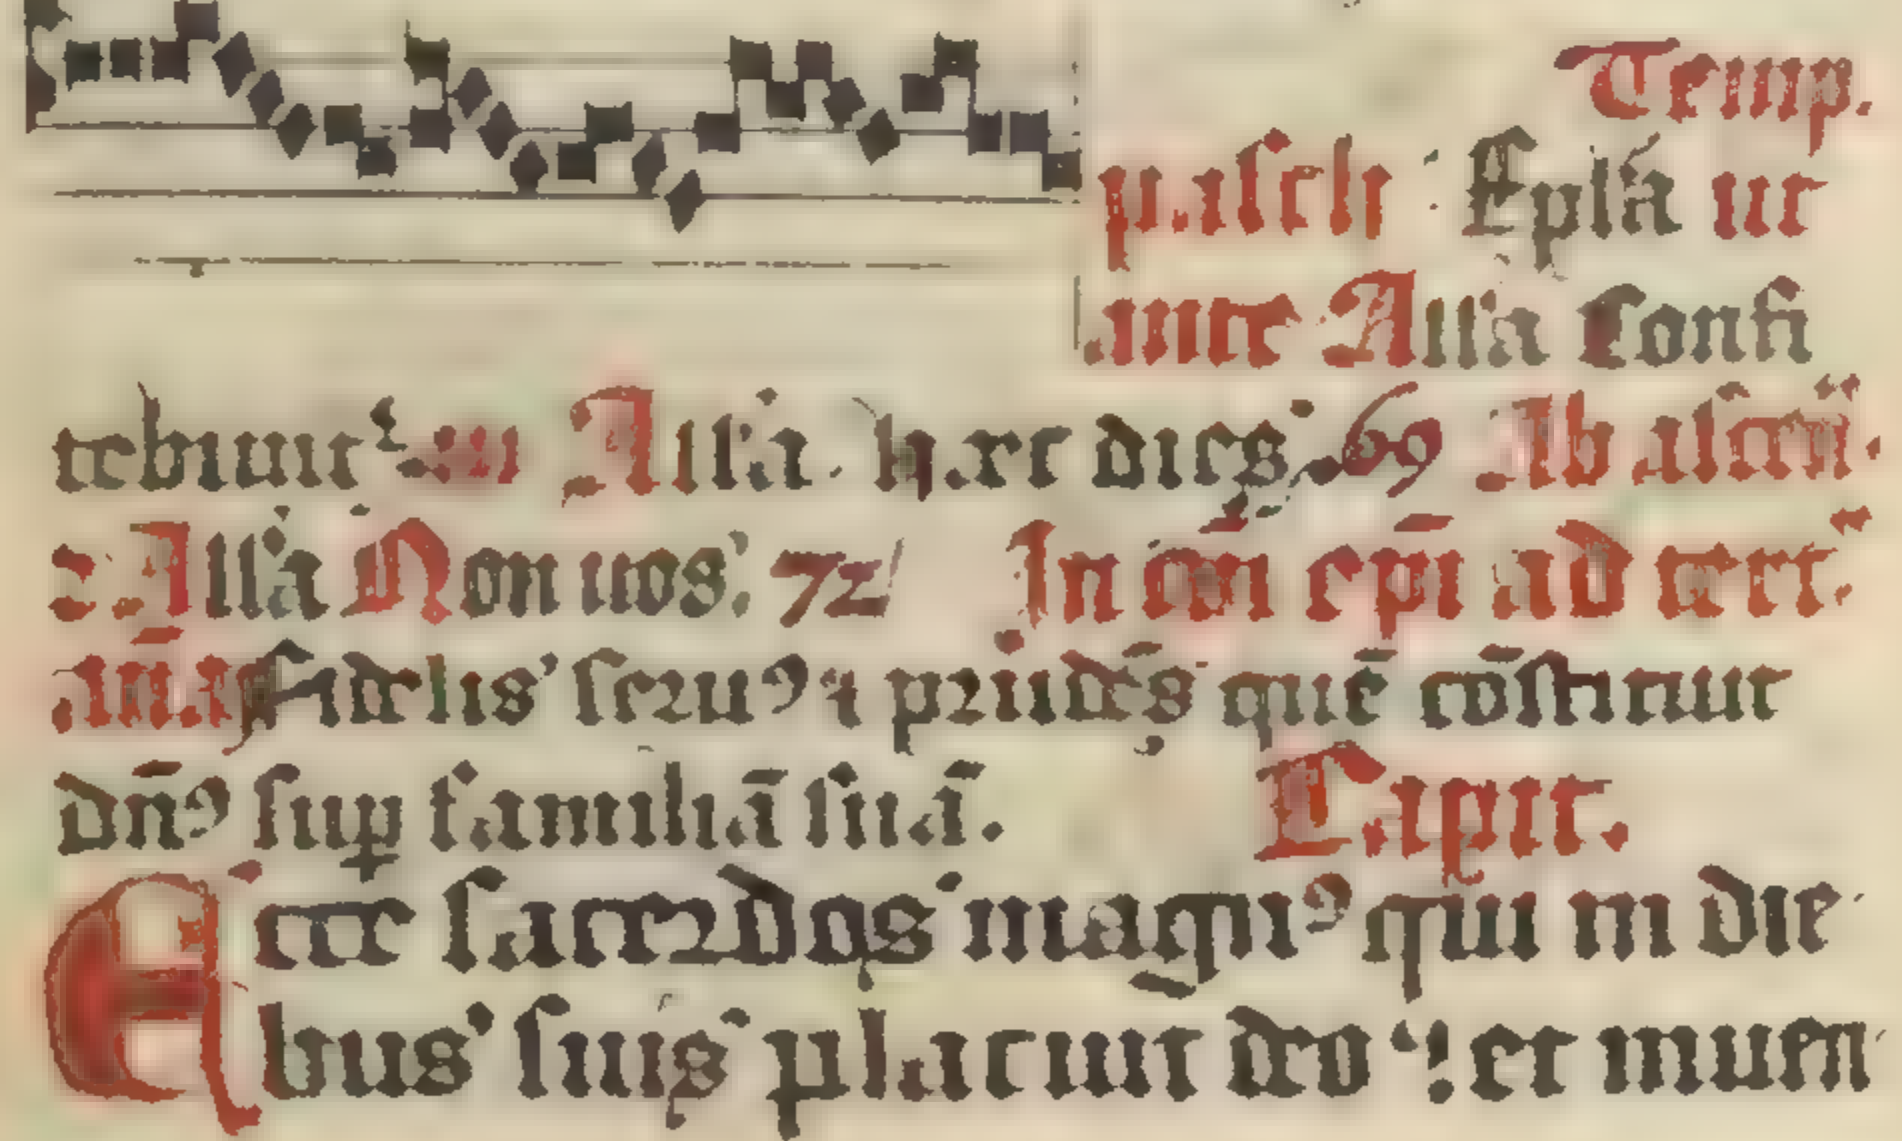 Temp.
pasch Ep̄la ut
ante All'a Confi
tebunt All'a hec dies 69 Ab ascen̄.
All'a Non uos. 72 In cōi ep̄i ad terc̄.
an̄a Fidelis seruꝰ ⁊ prudēs quē cōstituit
dn̄ꝰ suꝑ familiā suā. Capit.
Ecce sacerdos magnꝰ qui in die
bus suis placuit deo: et inuen